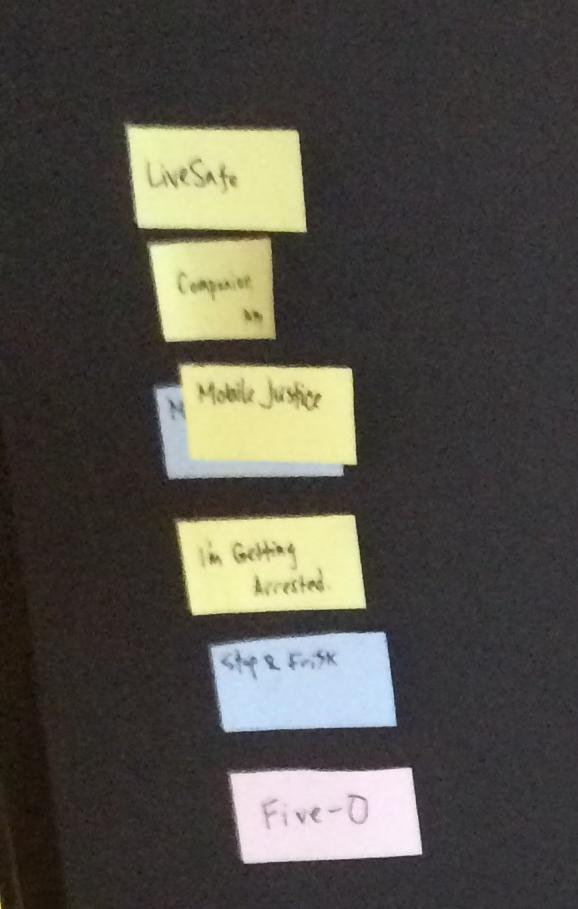 LiveSafe
Companion
Mobile Justice
M
I'm Getting
Arrested.
Stop & Frisk
Five-O